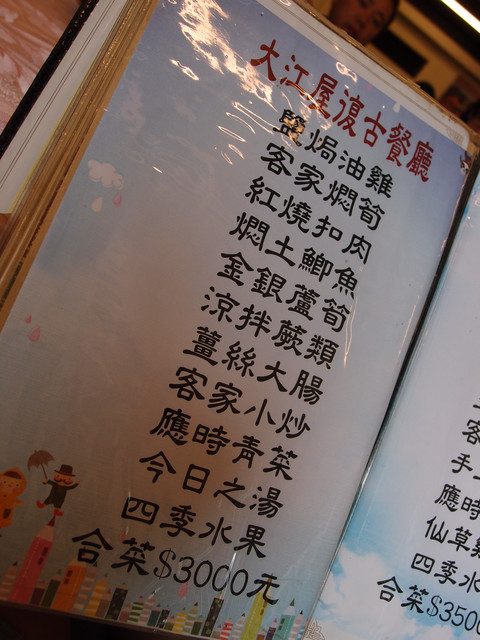 大江屋復古餐廳
鹽焗油雞
客家燜筍
紅燒扣肉
燜土鯽魚
金銀蘆筍
涼拌蕨類
薑絲大腸
客家小炒
應時青菜
今日之湯
四季水果
合菜$3000元
客
手
應時
仙草雞
四季水
合菜$350